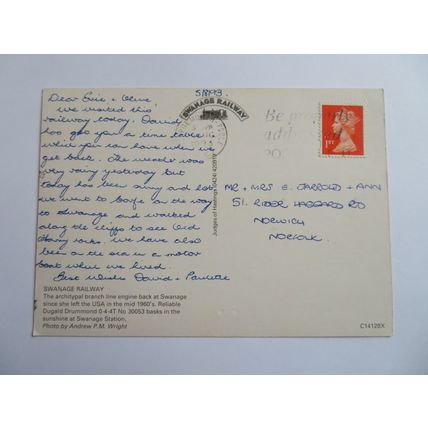 5/8/93
Dear Eric + Olive,
We visited this
railway today. David
has got you a time table
which you can have when we
get back. The weather was
very rainy yesterday but
today has been sunny and hot
we went to Corfe on the way
to Swanage and walked
along the cliffs to see Old
Harry rocks. We have also
been on the sea in a motor
boat what we hired.
Best Wishes David + Paulette
SWANAGE RAILWAY
The archetypal branch line engine back at Swanage
since she left the USA in the mid 1960's. Reliable
Dugald Drummond 0-4-4T No 30053 basks in the
sunshine at Swanage Station.
Photo by Andrew P.M. Wright
Judges of Hastings (0424) 420919
SWANAGE RAILWAY
Be properly
addressed
1ST
MR + MRS E. JARROLD + ANN
51. RIDER HAGGARD RD
NORWICH
NORFOLK.
C14128X